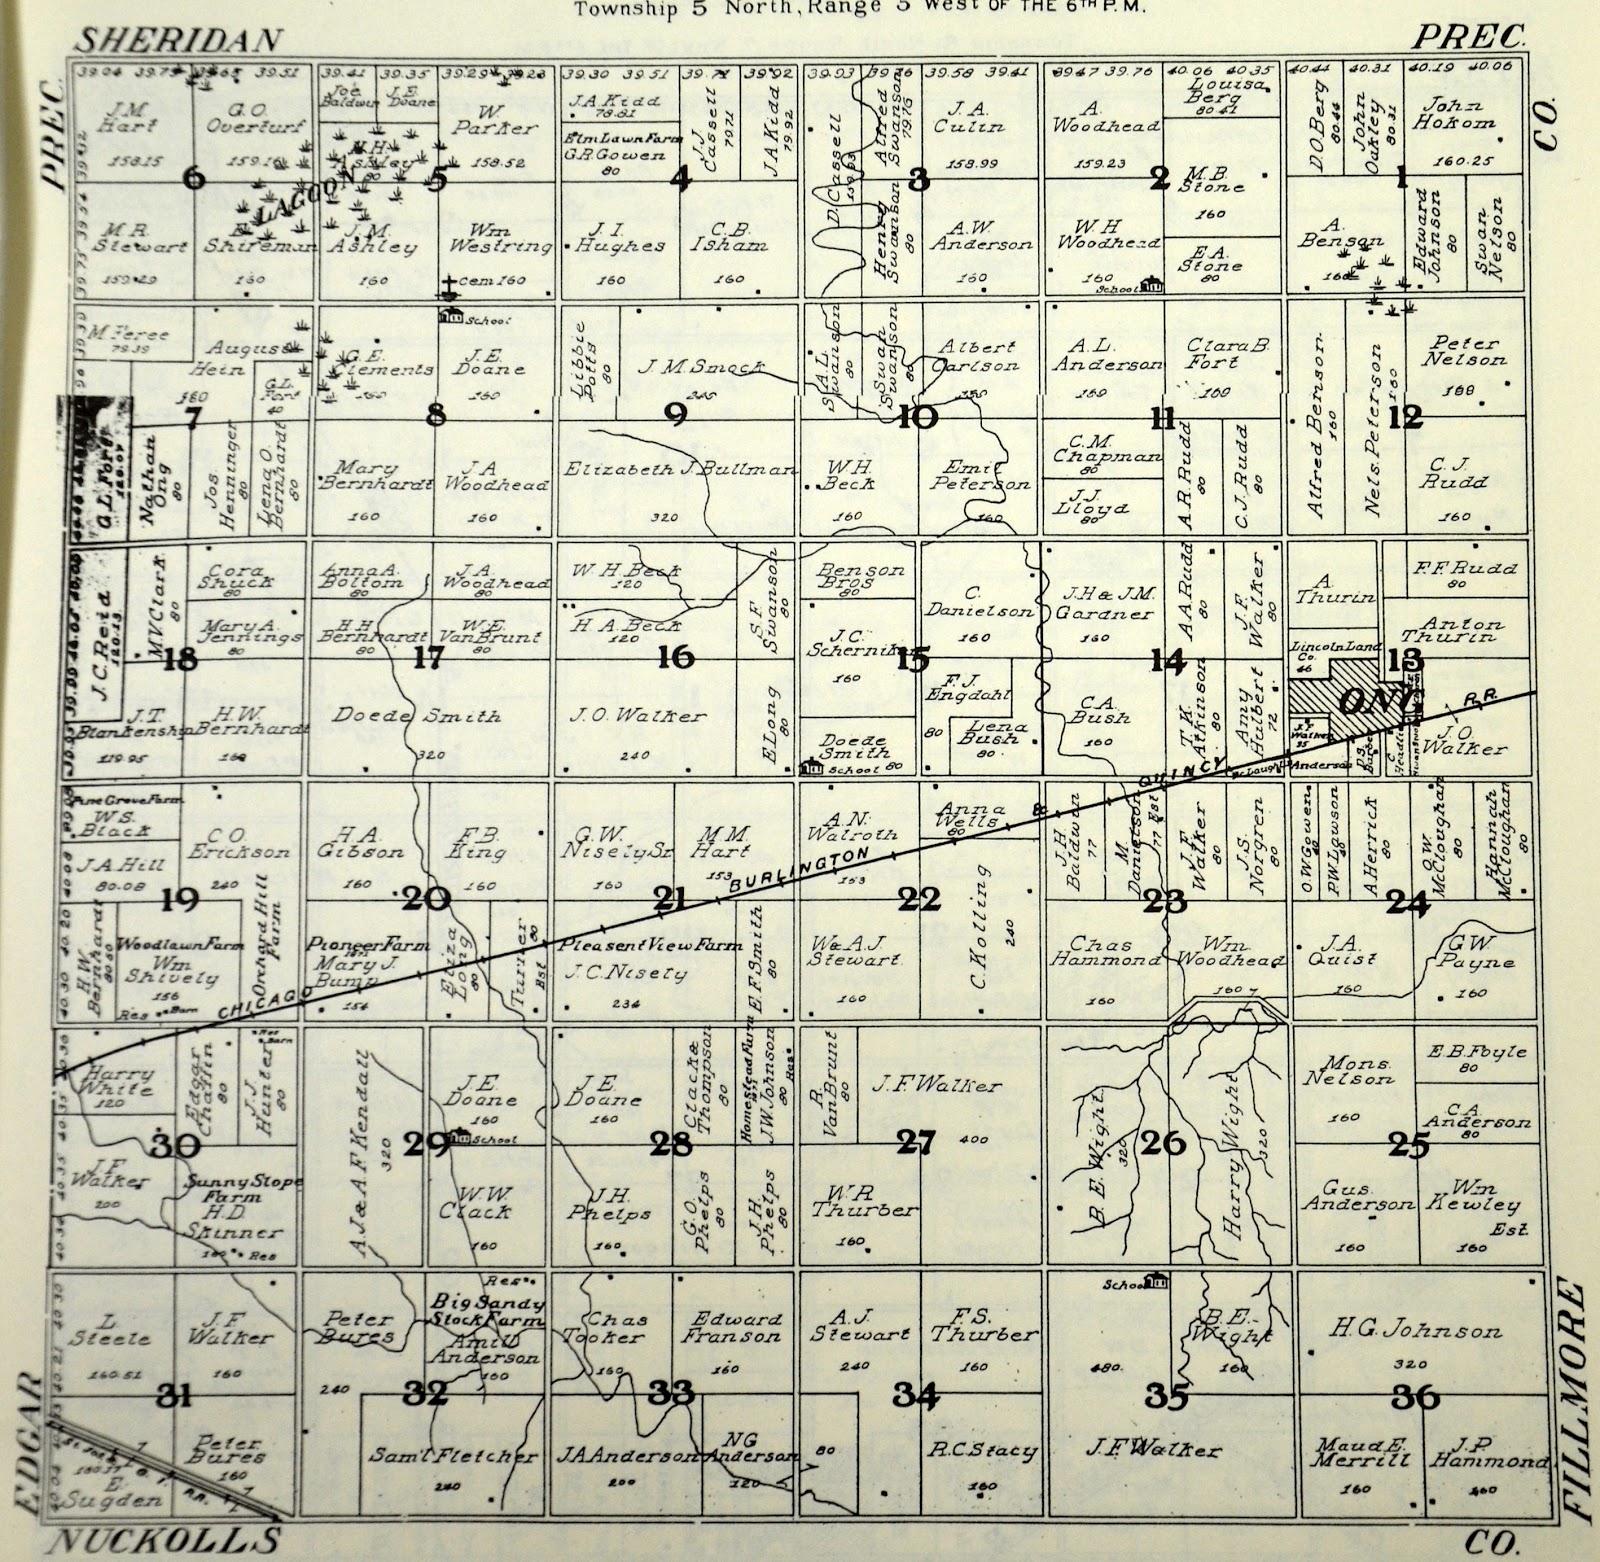 Township 5 North, Range 5 West OF THE 6TH P.M.
SHERIDAN
PREC.
PREC.
CO.
39.04 39.51
39.41 39.35 39.29
39.30 39.51 39.71 39.92
39.93 39.58 39.41
39.47 39.76 40.06 40.35
40.44 40.31 40.19 40.06
J.M.
Hart
158.15
G.O.
Overturf
159.16
6
LAGOON
M.R.
Stewart
159.29
E.
Shireman
160
Joe
Baldwin
J.E.
Doane
M.H.
Ashley
80
W.
Parker
158.52
5
J.M.
Ashley
160
Wm
Westring
cem 160
J.A. Kidd
79.81
Elm Lawn Farm
G.R. Gowen
80
J.J.
Cassell
79.71
J.A. Kidd
79.92
4
J.I.
Hughes
160
C.B.
Isham
160
D. Cassell
159.93
Alfred
Swanson
79.76
J.A.
Culin
158.99
3
Henry
Swanson
80
A.W.
Anderson
160
A.
Woodhead
159.23
Louisa
Berg
80.41
2
M.B.
Stone
160
W.H
Woodhead
160
School
E.A.
Stone
80
D.O. Berg
80.44
John
Oakley
80.31
John
Hokom
160.25
1
A.
Benson
160
Edward
Johnson
80
Swan
Nelson
80
M. Feree
79.39
August
Hein
160
G.L.
Fort
40
7
G.L. Fort
Nathan
Ong
80
Jos
Henninger
80
Lena O.
Bernhardt
80
School
G.E.
Clements
160
J.E.
Doane
160
8
Mary
Bernhardt
160
J.A
Woodhead
160
Libbie
Potts
80
J.M. Smock
240
9
Elizabeth J. Bullman
320
S.A.L.
Swanson
80
Swan
Swanson
80
Albert
Carlson
160
10
W.H.
Beck
160
Emil
Peterson
160
A.L.
Anderson
160
Clara B.
Fort
160
11
C.M.
Chapman
80
J.J.
Lloyd
80
A.R. Rudd
80
C.J. Rudd
80
Alfred Benson
160
Nels. Peterson
160
Peter
Nelson
160
12
C.J.
Rudd
160
J.C. Reid
120.13
M.V. Clark
80
Cora
Shuck
80
Mary A.
Jennings
80
18
J.T.
Blankenship
119.95
H.W.
Bernhardt
160
Anna A.
Bottom
80
J.A.
Woodhead
80
H.H.
Bernhardt
80
W.E.
VanBrunt
80
17
Doede Smith
320
W.H. Beck
120
H A. Beck
120
S.F.
Swanson
80
16
J.O. Walker
240
E Long
80
Benson
Bros
80
J.C.
Scherniker
160
C.
Danielson
160
15
Doede
Smith
School 80
F.J.
Engdahl
80
Lena
Bush
80
J.H & J.M.
Gardner
160
A A Rudd
80
J.F.
Walker
80
14
C.A.
Bush
160
T.K.
Atkinson
80
Amy
Hulbert
72
A.
Thurin
F.F. Rudd
80
Anton
Thurin
Lincoln Land
Co.
46
13
ONG
J.F.
Walker
Anderson
J.O.
Walker
R.R.
QUINCY
Pine Grove Farm
W.S.
Black
J.A. Hill
80.08
C.O.
Erickson
240
19
H.W.
Bernhardt
Woodlawn Farm
Wm
Shively
156
Res Barn
Orchard Hill
Farm
CHICAGO
H.A.
Gibson
160
F.B.
King
160
20
Pioneer Farm
Mary J.
Bump
154
Eliza
Long
80
Turner
Est
80
G.W.
Nisely, Sr
160
M.M.
Hart
153
21
BURLINGTON
Pleasent View Farm
J.C. Nisely
234
E.F. Smith
80
A.N.
Walroth
153
Anna
Wells
80
&
22
W. & A.J.
Stewart
160
C. Kolling
240
J.H.
Baldwin
77
M.
Danielson Est
77
J.F.
Walker
80
J.S.
Norgren
80
23
Chas
Hammond
160
Wm.
Woodhead
160
O.W. Gowen
P.W. Lawson
A Herrick
80
O.W.
McCloughan
80
Hannah
McCloughan
80
24
J.A.
Quist
160
G.W.
Payne
160
Harry
White
120
Edgar
Chaffin
80
J.J.
Hunter
80
Res
Barn
30
J.F.
Walker
200
Sunny Slope
Farm
H.D.
Skinner
160 Res
A.J & A.F. Kendall
320
J.E.
Doane
160
29
School
W.W.
Clack
160
J.E.
Doane
160
Clack &
Thompson
80
Homestead Farm
J.W. Johnson
80
Res
28
J.H.
Phelps
160
G.O.
Phelps
80
J.H.
Phelps
80
R.
VanBrunt
80
J.F. Walker
400
27
W.R
Thurber
160
B.E. Wight
320
26
Harry Wight
320
Mons.
Nelson
160
E.B. Foyle
80
C.A.
Anderson
80
25
Gus.
Anderson
160
Wm
Kewley
Est.
160
L
Steele
160.51
J.F.
Walker
160
31
Peter
Bures
160
E.
Sugden
R.R.
Peter
Bures
240
Res
Big Sandy
Stock Farm
Amil
Anderson
160
32
Sam'l Fletcher
240
Chas
Tooker
160
Edward
Franson
160
33
J.A Anderson
200
N G
Anderson
120
A.J.
Stewart
240
F.S.
Thurber
160
34
80
R.C. Stacy
160
School
B.E.
Wight
160
480
35
J.F. Walker
H.G. Johnson
320
36
Maud E.
Merrill
160
J.P.
Hammond
160
EDGAR
FILLMORE
NUCKOLLS
CO.